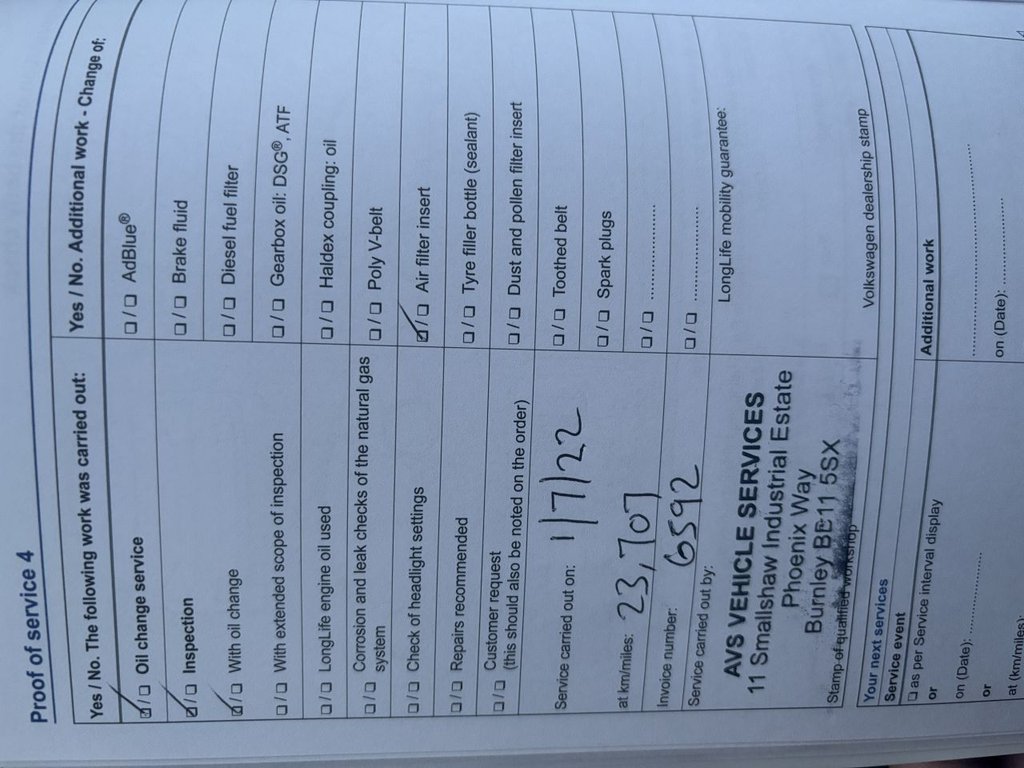 Proof of service 4
Yes / No. The following work was carried out:
☑/☐ Oil change service
☑/☐ Inspection
☑/☐ With oil change
☐/☐ With extended scope of inspection
☐/☐ LongLife engine oil used
☐/☐ Corrosion and leak checks of the natural gas
system
☐/☐ Check of headlight settings
☐/☐ Repairs recommended
☐/☐ Customer request
(this should also be noted on the order)
Service carried out on: 1/7/22
at km/miles: 23,707
Invoice number: 6592
Service carried out by:
AVS VEHICLE SERVICES
11 Smallshaw Industrial Estate
Phoenix Way
Burnley BB11 5SX
Stamp of qualified workshop
Yes / No. Additional work - Change of:
☐/☐ AdBlue®
☐/☐ Brake fluid
☐/☐ Diesel fuel filter
☐/☐ Gearbox oil: DSG®, ATF
☐/☐ Haldex coupling: oil
☐/☐ Poly V-belt
☑/☐ Air filter insert
☐/☐ Tyre filler bottle (sealant)
☐/☐ Dust and pollen filter insert
☐/☐ Toothed belt
☐/☐ Spark plugs
☐/☐ ....................
☐/☐ ....................
LongLife mobility guarantee:
Volkswagen dealership stamp
Your next services
Service event
☐ as per Service interval display
or
on (Date): ....................
or
at (km/miles):
Additional work
........................................
on (Date): ....................